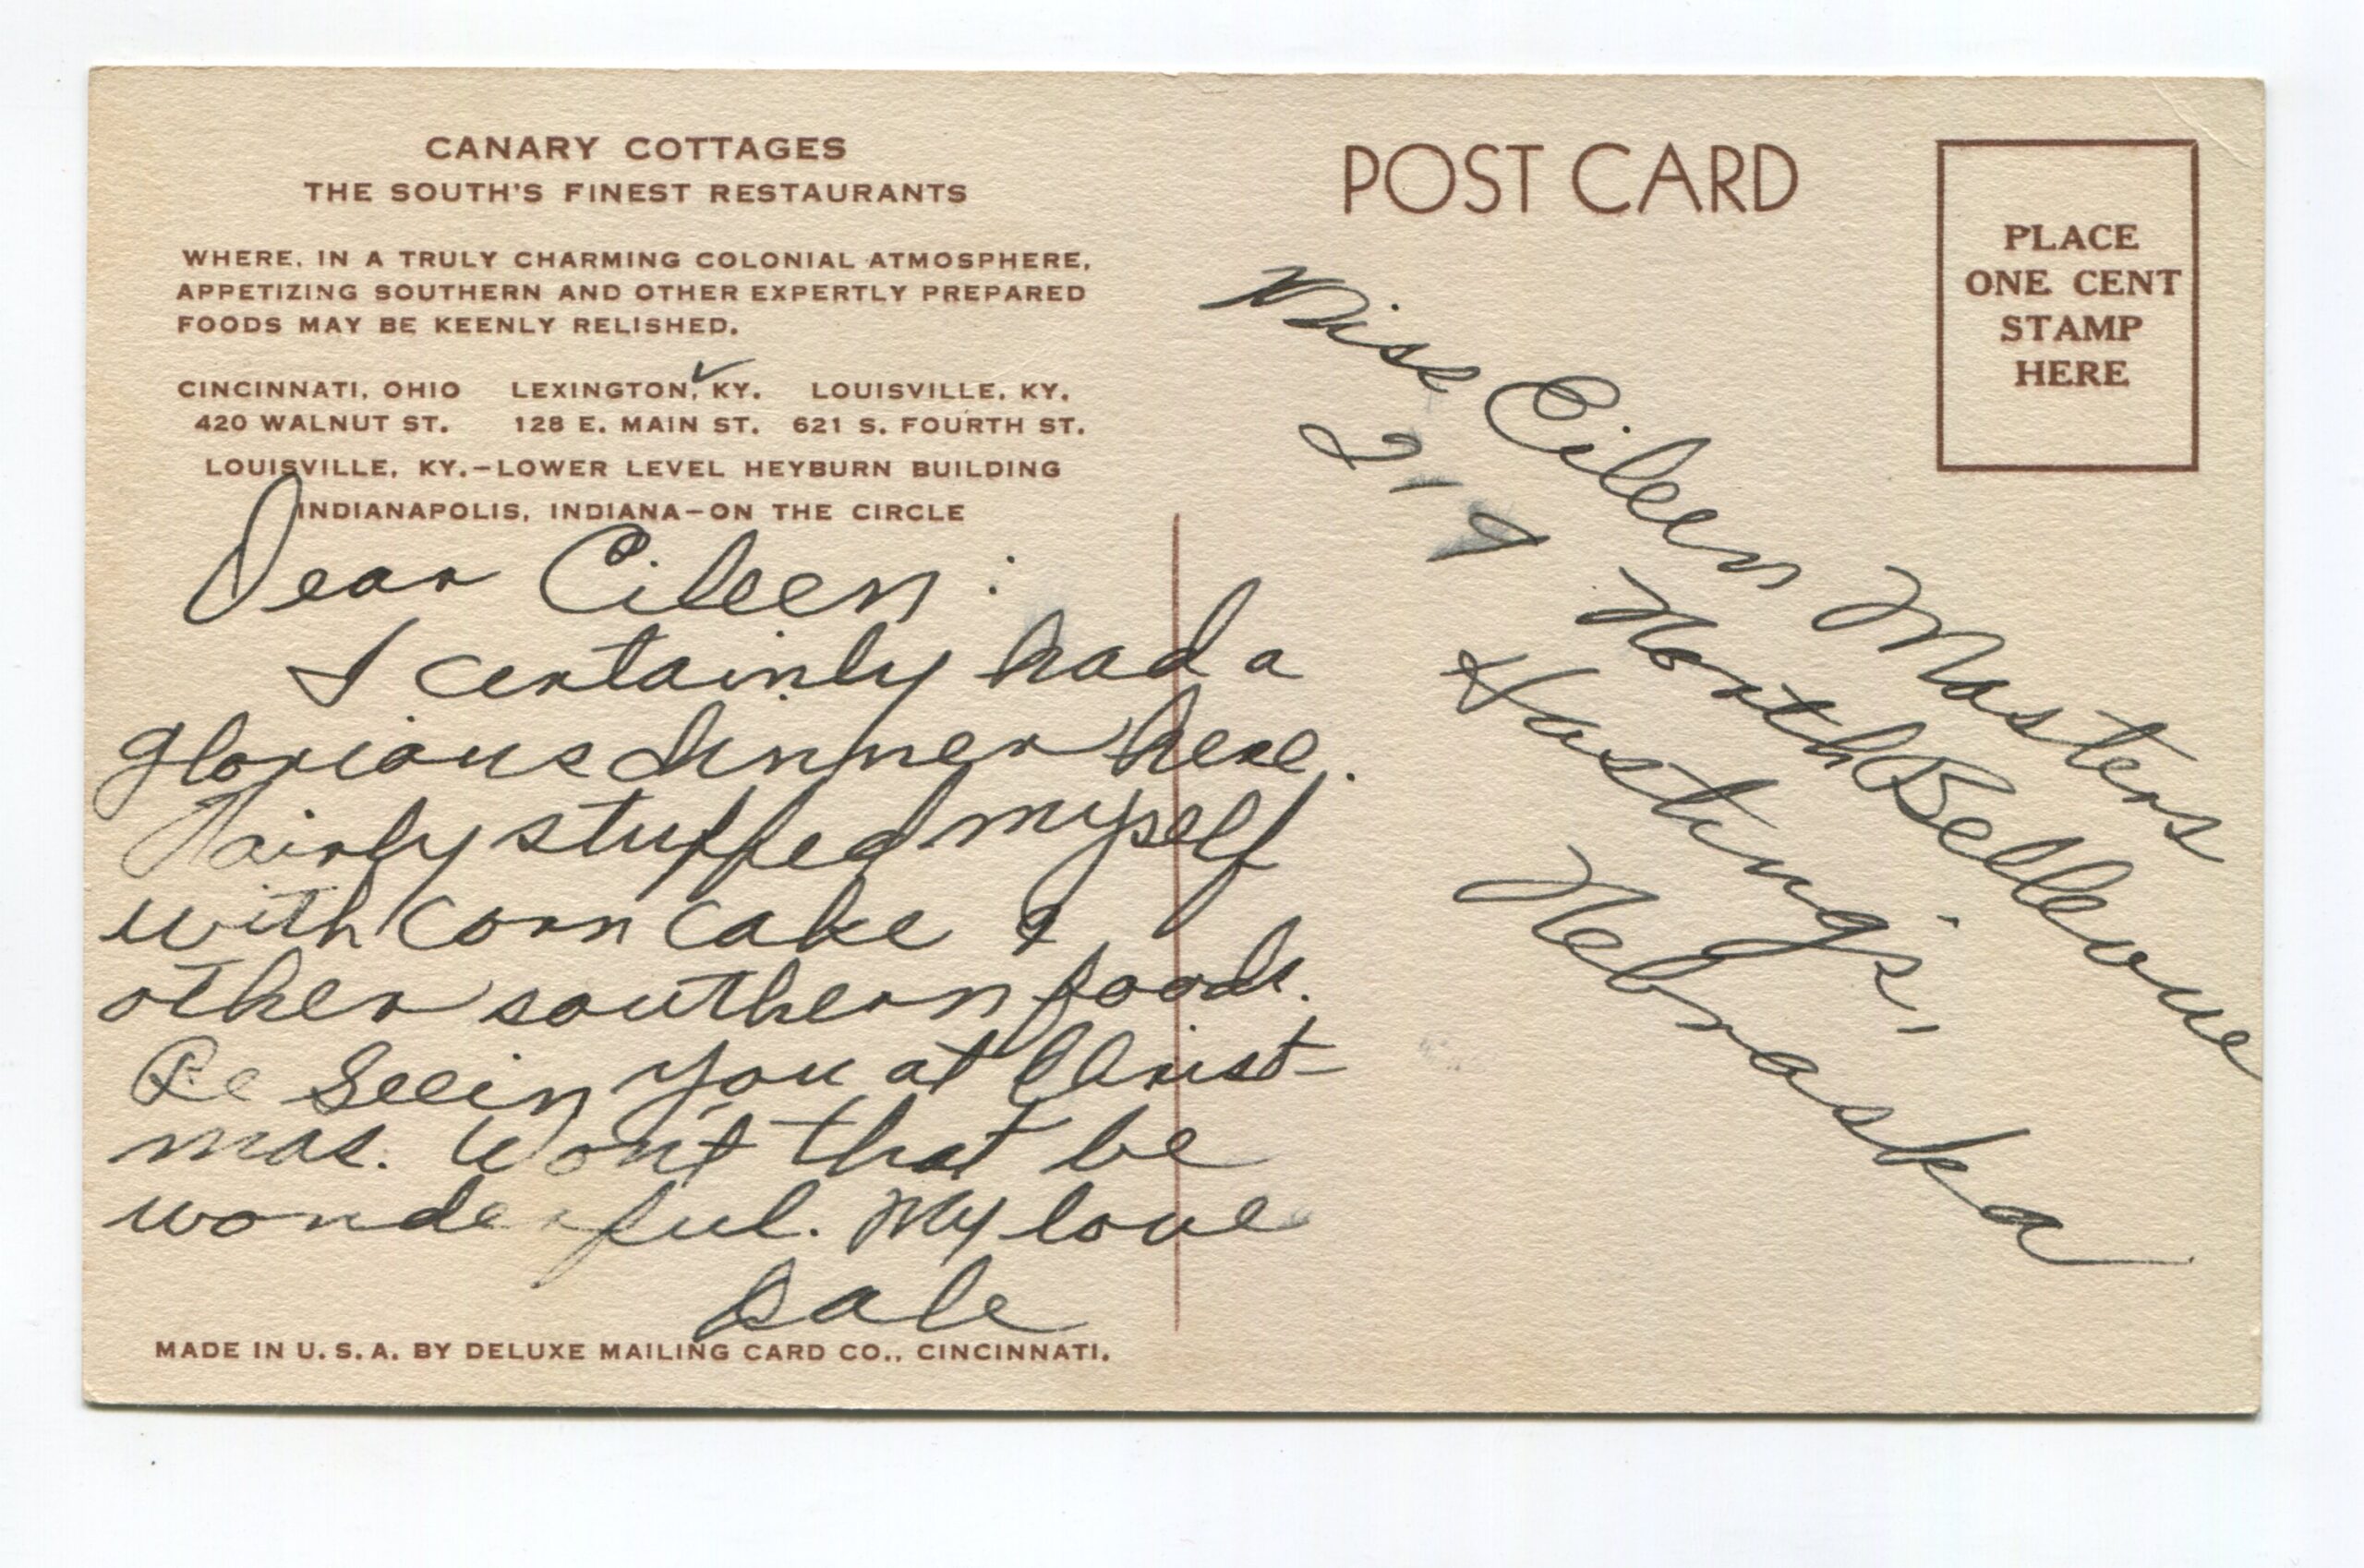 CANARY COTTAGES
THE SOUTH'S FINEST RESTAURANTS
WHERE, IN A TRULY CHARMING COLONIAL ATMOSPHERE,
APPETIZING SOUTHERN AND OTHER EXPERTLY PREPARED
FOODS MAY BE KEENLY RELISHED.
CINCINNATI, OHIO LEXINGTON, KY. LOUISVILLE, KY.
420 WALNUT ST. 128 E. MAIN ST. 621 S. FOURTH ST.
LOUISVILLE, KY.-LOWER LEVEL HEYBURN BUILDING
INDIANAPOLIS, INDIANA-ON THE CIRCLE
Dear Eileen:
I certainly had a
glorious dinner here.
Fairly stuffed myself
with corn cake &
other southern foods.
Be seein you at Christ-
mas. Won't that be
wonderful. My love
Dale
MADE IN U.S.A. BY DELUXE MAILING CARD CO., CINCINNATI.
POST CARD
PLACE
ONE CENT
STAMP
HERE
Miss Eileen Masters
219 North Bellevue
Hastings,
Nebraska